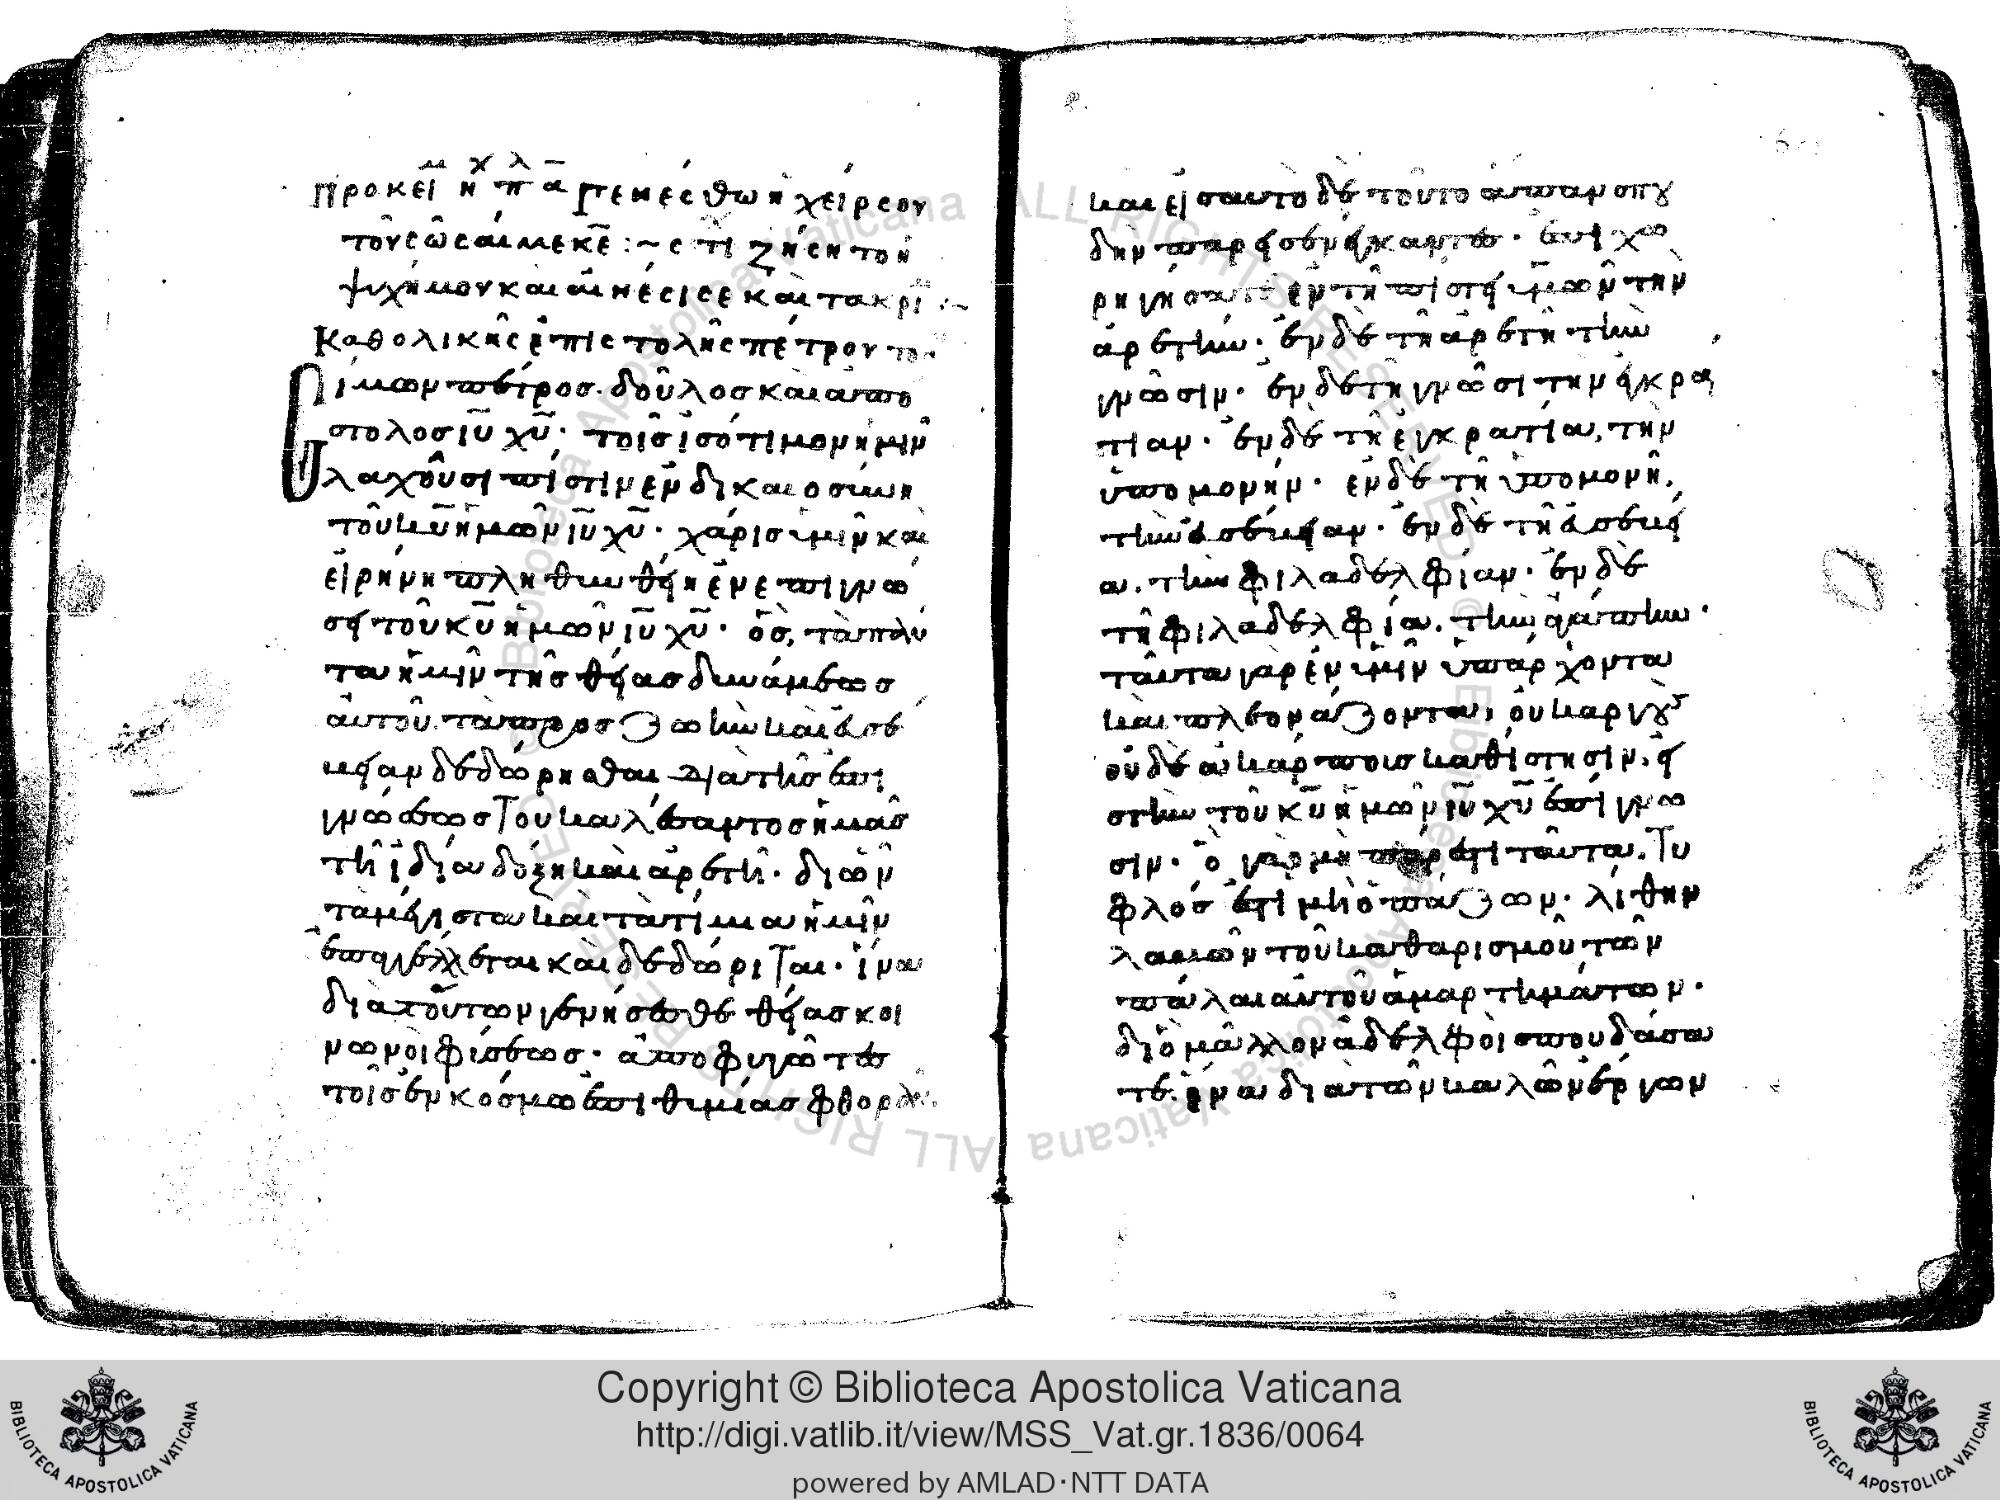 Προκεί η π α Γενέσθω η χείρ σου
τοῦ σῶσαί με κ ε :~ στι Ζήση τον
ψυχή μου και αινέσι σε και τα κρί
Καθολικῆς ἐπιστολῆς πέτρου το
ίμων πέτρος· δοῦλος και απο
στολος ιυ χυ· τοῖς ἰσότιμον ημῖν
λαχοῦσι πίστιν ἐν δικαιοσύνη
τοῦ κυ ημῶν ιυ χυ· χάρις υμῖν και
εἰρήνη πληθυνθείη εν επιγνώ
σει τοῦ κυ ημῶν ιυ χυ· ὡς, τὰ πάν
τα ημῖν τῆς θείας δυνάμεως
αυτοῦ. τὰ προς ζωην και ευσέ
βειαν δεδώρηθαι διὰ τῆς επι
γνώσεως Του καλέσαντος ημᾶς
τῆ ιδία δόξη και αρετῆ· δι ὧν
τα μέγιστα και τὰ τίμια ημῖν
επαγγέλεται και δεδώριΤαι· ίνα
διὰ τούτων γένησθε θείας κοι
νωνοὶ φίσεως· αποφυγῶντες
τοῖς εν κόσμω επιθιμίας φθορᾶς
και εἰς αυτὸ δὲ τοῦτο ἅπασαν σπου
δην παρεισενέγκαντες· επιχω
ρηγήσατε εν τῆ πίστει υμῶν τὴν
αρετήν· εν δὲ τῆ αρετῆ τὴν
γνῶσιν· εν δὲ τη γνῶσι την εγκρα
τίαν· εν δὲ τῆ εγκρατία, τὴν
ὑπομονήν· εν δὲ τῆ υπομονῆ,
την ευσέβειαν· εν δὲ τῆ ευσεβεί
α, την φιλαδελφίαν· εν δὲ
τῆ φιλαδελφία, την αγάπην·
ταῦτα γὰρ εν υμῖν υπάρχοντα
και πλεονάζοντα, οὐκ αργοὺς
οὐδὲ ακάρποις καθίστησιν, εἰ
ς την τοῦ κυ ημῶν ιυ χυ επίγνω
σιν· ὧ γαρ μη πάρεστι ταῦτα, Τυ
φλός εστι μυωπάζων· λίθην
λαβὼν τοῦ καθαρισμοῦ τῶν
πάλαι αυτοῦ αμαρτημάτων·
διὸ μᾶλλον αδελφοὶ σπουδάσα
τε ἵνα διὰ τῶν καλῶν έργων
Copyright © Biblioteca Apostolica Vaticana
http://digi.vatlib.it/view/MSS_Vat.gr.1836/0064
powered by AMLAD·NTT DATA
BIBLIOTECA APOSTOLICA VATICANA
BIBLIOTECA APOSTOLICA VATICANA